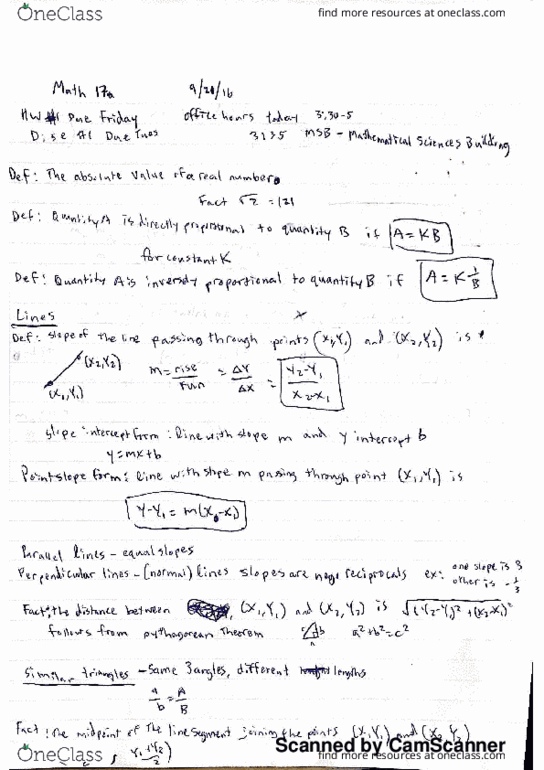 OneClass find more resources at oneclass.com
Math 17a 9/28/16
HW #1 Due Friday office hours today 3:30-5
Disc #1 Due Tues 3235 MSB - Mathematical Sciences Building
Def: The absolute value of a real number
Fact √2 = |2|
Def: Quantity A is directly proportional to quantity B if A = KB
for constant K
Def: Quantity A is inversly proportional to quantity B if A = K 1/B
Lines
Def: slope of the line passing through points (X1,Y1) and (X2,Y2) is
(X2,Y2)
m = rise/run = ΔY/ΔX = Y2-Y1/X2-X1
(X1,Y1)
slope intercept form: line with slope m and y intercept b
y=mx+b
Point slope form: line with slope m passing through point (X1,Y1) is
Y-Y1 = m(X-X1)
Parallel lines - equal slopes
Perpendicular lines - (normal) lines slopes are nega reciprocals ex: one slope is 3
other is -1/3
Fact: the distance between (X1,Y1) and (X2,Y2) is √(Y2-Y1)²+(X2-X1)²
follows from pythagorean Theorem a²+b²=c²
Similar triangles - same 3 angles, different lengths
a/b = A/B
Fact: The midpoint of the line segment joining the points (X1,Y1) and (X2,Y2)
Scanned by CamScanner
Y1+Y2/2)
OneClass find more resources at oneclass.com